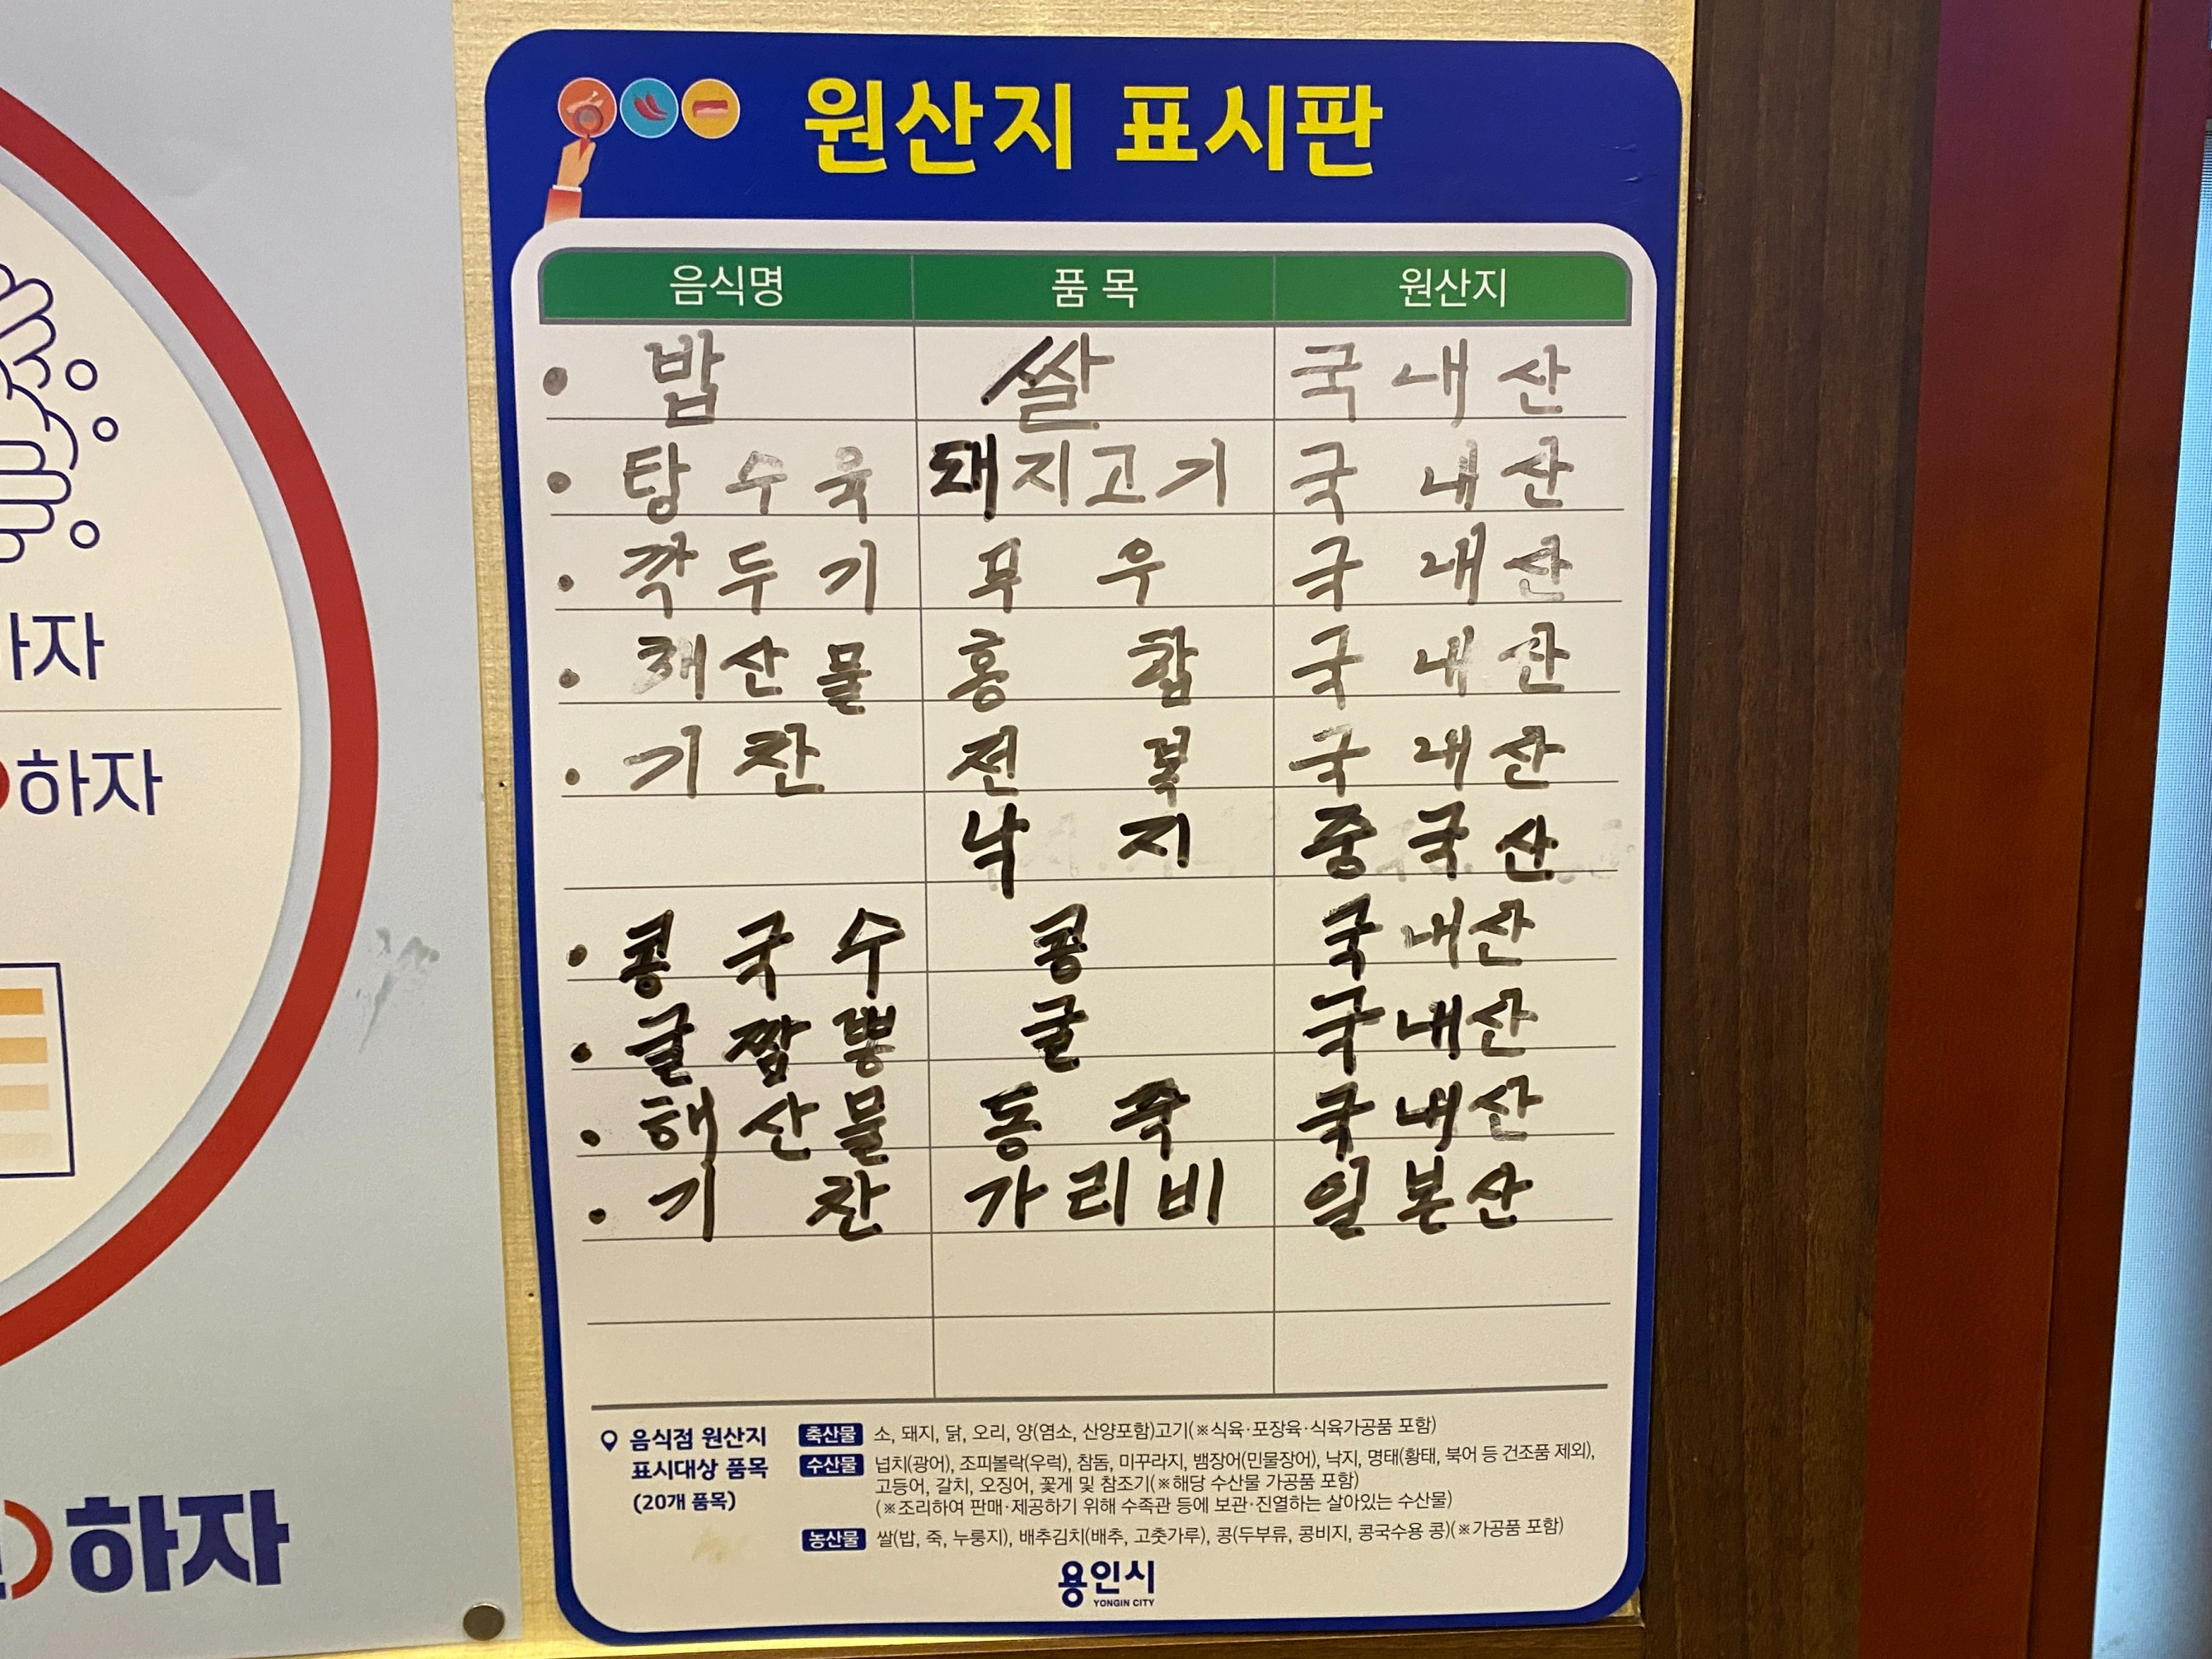 원산지 표시판
음식명 품 목 원산지
· 밥 쌀 국내산
· 탕수육 돼지고기 국내산
· 깍두기 무우 국내산
· 해산물 홍합 국내산
· 기찬 전복 국내산
낙지 중국산
· 콩국수 콩 국내산
· 굴짬뽕 굴 국내산
· 해산물 동죽 국내산
· 기찬 가리비 일본산
음식점 원산지
표시대상 품목
(20개 품목)
축산물 소, 돼지, 닭, 오리, 양(염소, 산양포함)고기(※식육·포장육·식육가공품 포함)
수산물 넙치(광어), 조피볼락(우럭), 참돔, 미꾸라지, 뱀장어(민물장어), 낙지, 명태(황태, 북어 등 건조품 제외),
고등어, 갈치, 오징어, 꽃게 및 참조기(※해당 수산물 가공품 포함)
(※조리하여 판매·제공하기 위해 수족관 등에 보관·진열하는 살아있는 수산물)
농산물 쌀(밥, 죽, 누룽지), 배추김치(배추, 고춧가루), 콩(두부류, 콩비지, 콩국수용 콩)(※가공품 포함)
용인시
YONGIN CITY
하자
하자